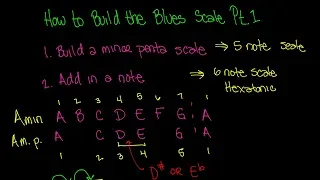 How to Build the Blues Scale Pt. 1
1. Build a minor penta scale ⇒ 5 note scale
2. Add in a note ⇒ 6 note scale
Hexatonic
1 2 3 4 5 6 7 1
Amin A B C D E F G A
Am.p. A C D E G A
1 2 3 4 5 1
D# OR Eb